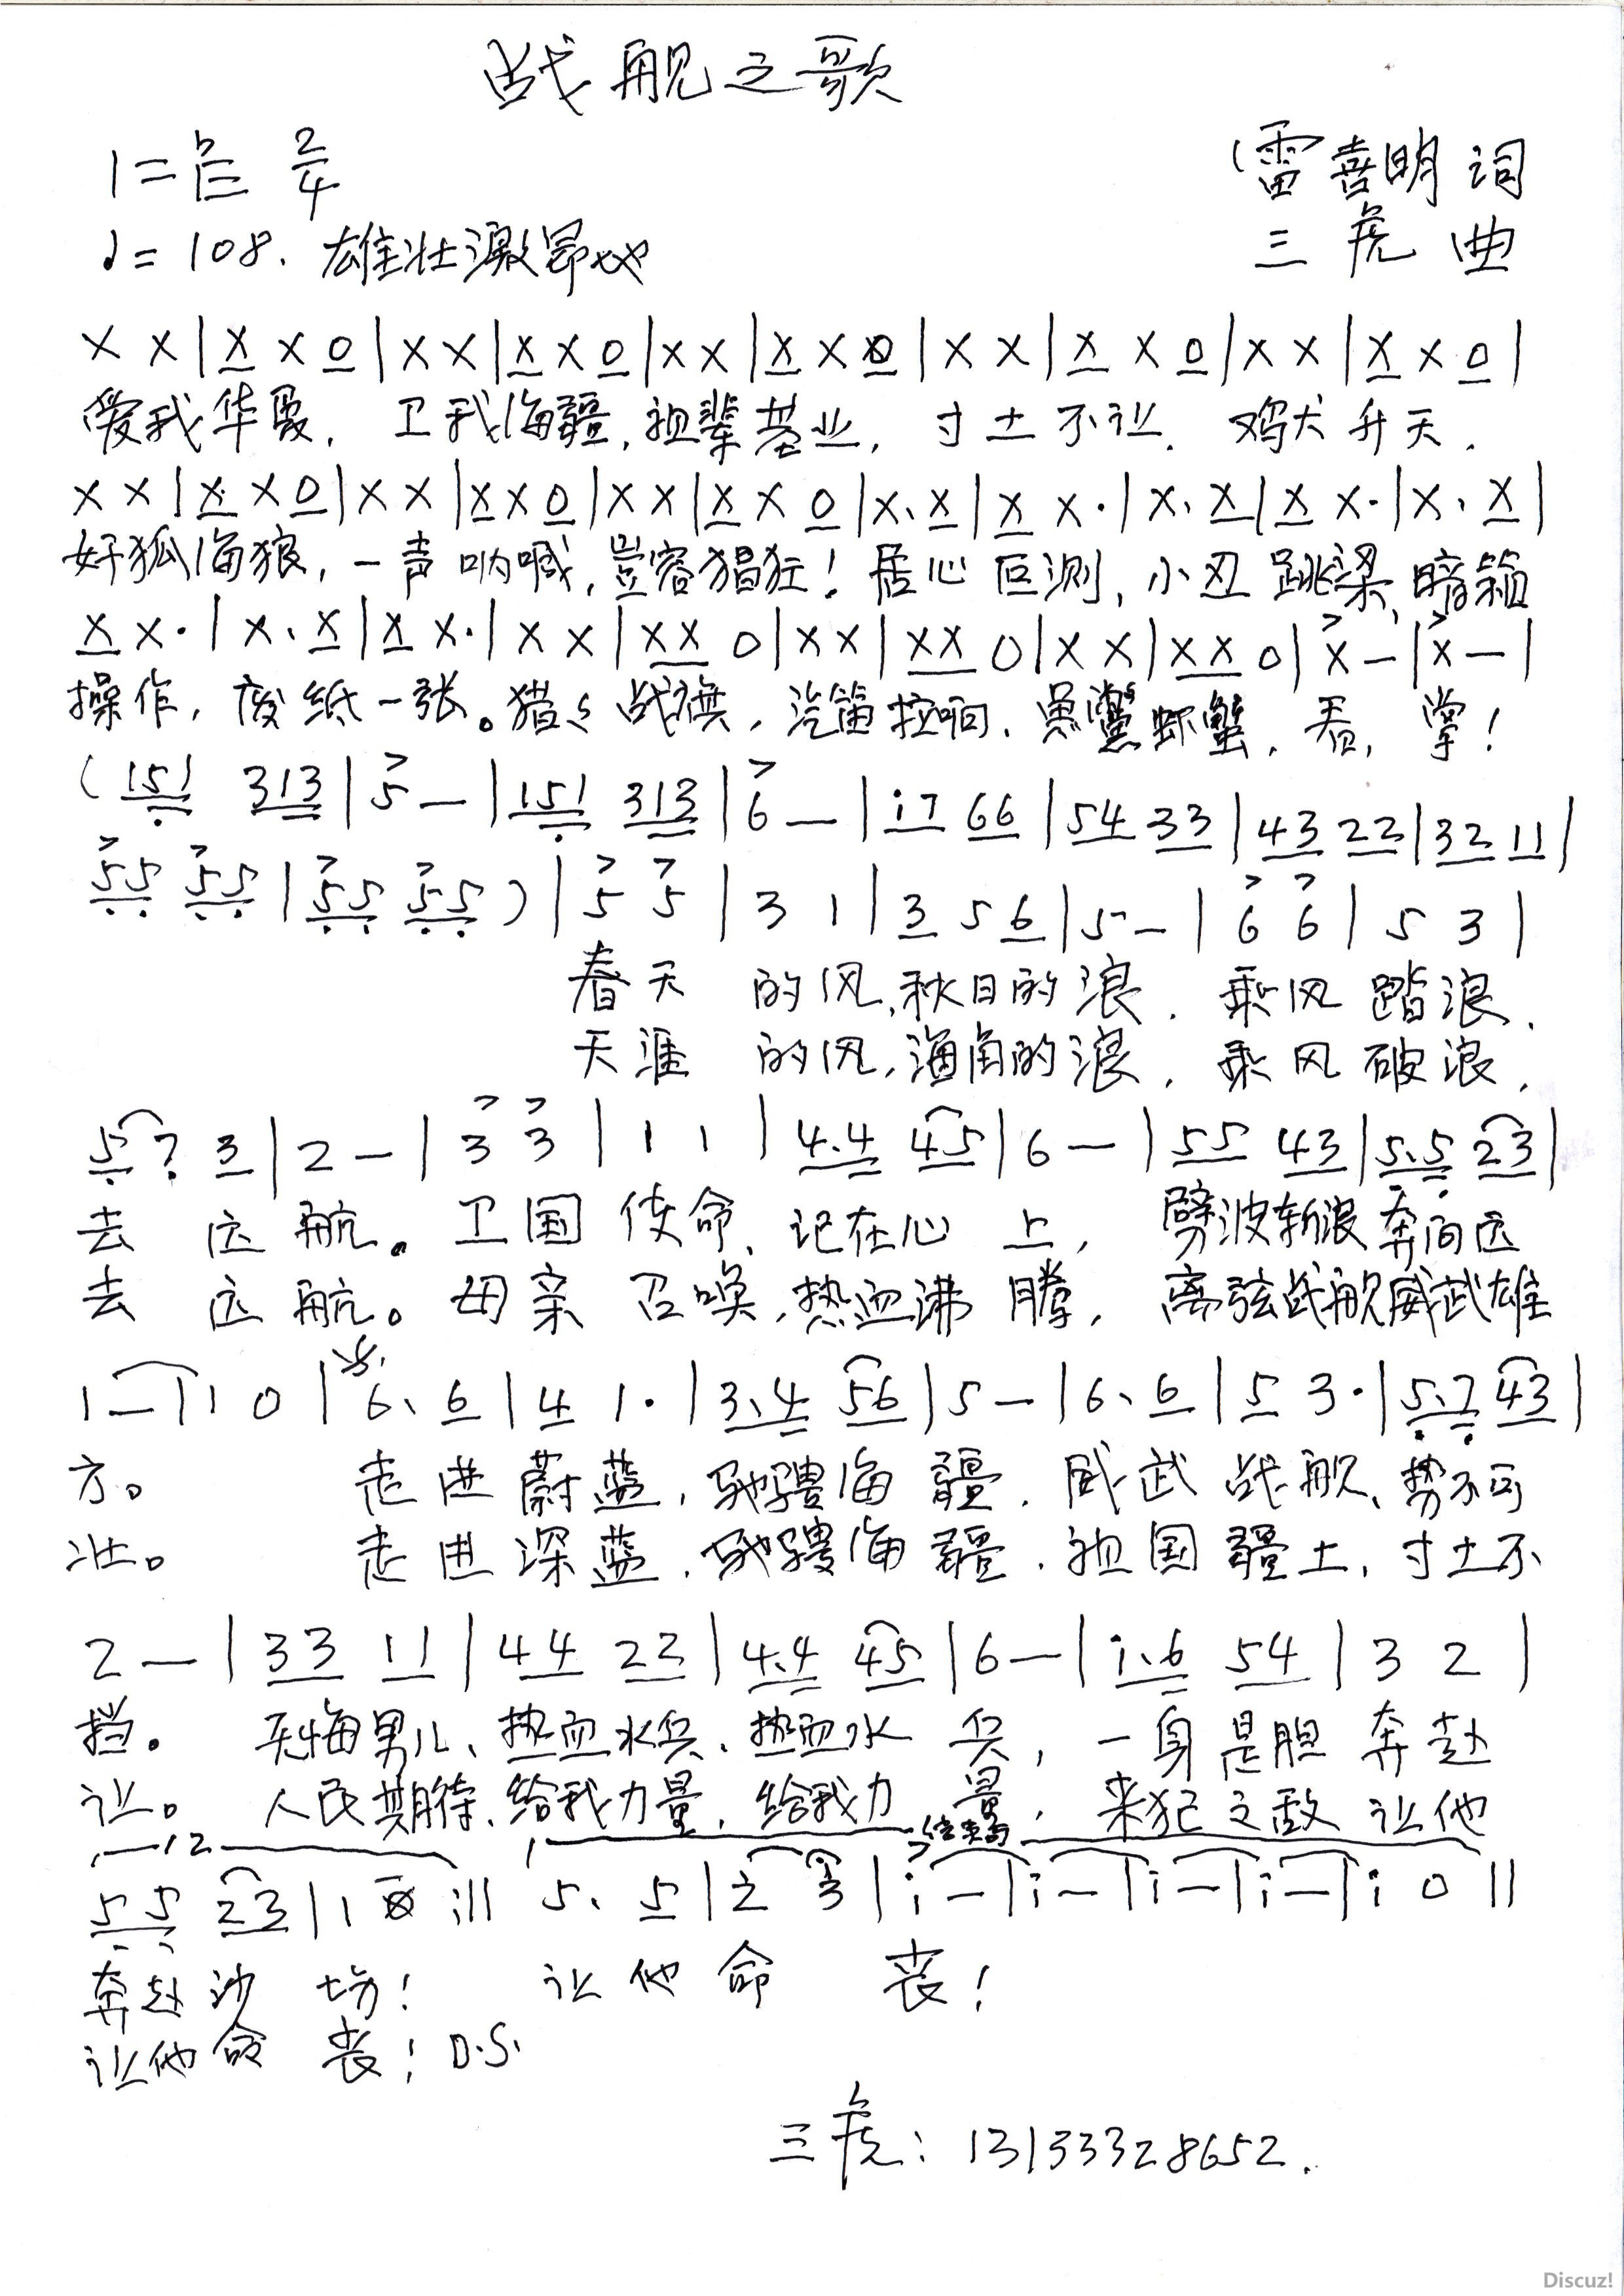 战舰之歌
1=♭E 2/4
(雷喜明 词
♩=108. 雄壮激昂地
三虎 曲
X X|X X 0|X X|X X 0|X X|X X 0|X X|X X 0|X X|X X 0|
爱我华夏, 卫我海疆,祖辈基业, 寸土不让. 鸡犬升天.
X X|X X 0|X X|X X 0|X X|X X 0|X. X|X X.|X. X|X X.|X. X|
奸狐海狼,一声呐喊,岂容猖狂!居心叵测,小丑跳梁,暗箱
X X.|X. X|X X.|X X|XX 0|XX|XX 0|X X|XX 0|X -|X -|
操作,废纸一张。猎々战旗,汽笛拉响.鱼鳖虾蟹.看,掌!
(151 313|5 -|151 313|6 -|i7 66|54 33|43 22|32 11|
55 55|55 55)|5 5|3 1|3 5 6|5 -|6 6|5 3|
春天 的风,秋日的浪. 乘风踏浪.
天涯 的风,海角的浪. 乘风破浪,
5 7 3|2 -|3 3|1 1|4.4 45|6 -|55 43|5.5 23|
去 远航。卫国使命、记在心 上, 劈波斩浪奔向远
去 远航。母亲召唤,热血沸 腾, 离弦战舰威武雄
1 -|1 0|6. 6|4 1.|3.4 56|5 -|6. 6|5 3.|5.7 43|
方。 走进蔚蓝,驰骋海疆.威武战舰、势不可
壮。 走进深蓝.驰骋海疆.祖国疆土,寸土不
2 -|33 11|44 22|4.4 45|6 -|i.6 54|3 2|
挡。 无悔男儿、热血水兵.热血水 兵,一身是胆奔赴
让。 人民期待、给我力量.给我力 量,来犯之敌让他
12 结束句
55 23|1 0 :|| 5. 5|2 3|i -|i -|i -|i -|i 0||
奔赴沙 场! 让他命 丧!
让他命 丧!D.S.
三虎:13133328652.
Discuz!